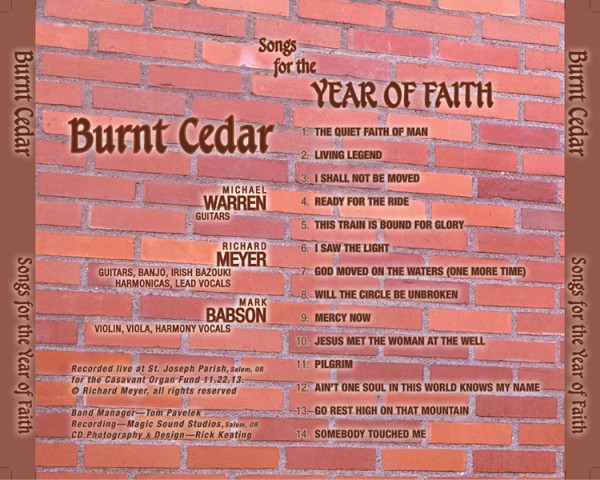 Burnt Cedar
Songs for the Year of Faith
Songs
for the
YEAR OF FAITH
Burnt Cedar
MICHAEL
WARREN
GUITARS
RICHARD
MEYER
GUITARS, BANJO, IRISH BAZOUKI
HARMONICAS, LEAD VOCALS
MARK
BABSON
VIOLIN, VIOLA, HARMONY VOCALS
Recorded live at St. Joseph Parish, Salem, OR
for the Casavant Organ Fund 11.22.13.
© Richard Meyer, all rights reserved
Band Manager—Tom Pavelek
Recording—Magic Sound Studios, Salem, OR
CD Photography & Design—Rick Keating
1. THE QUIET FAITH OF MAN
2. LIVING LEGEND
3. I SHALL NOT BE MOVED
4. READY FOR THE RIDE
5. THIS TRAIN IS BOUND FOR GLORY
6. I SAW THE LIGHT
7. GOD MOVED ON THE WATERS (ONE MORE TIME)
8. WILL THE CIRCLE BE UNBROKEN
9. MERCY NOW
10. JESUS MET THE WOMAN AT THE WELL
11. PILGRIM
12. AIN'T ONE SOUL IN THIS WORLD KNOWS MY NAME
13. GO REST HIGH ON THAT MOUNTAIN
14. SOMEBODY TOUCHED ME
Burnt Cedar
Songs for the Year of Faith